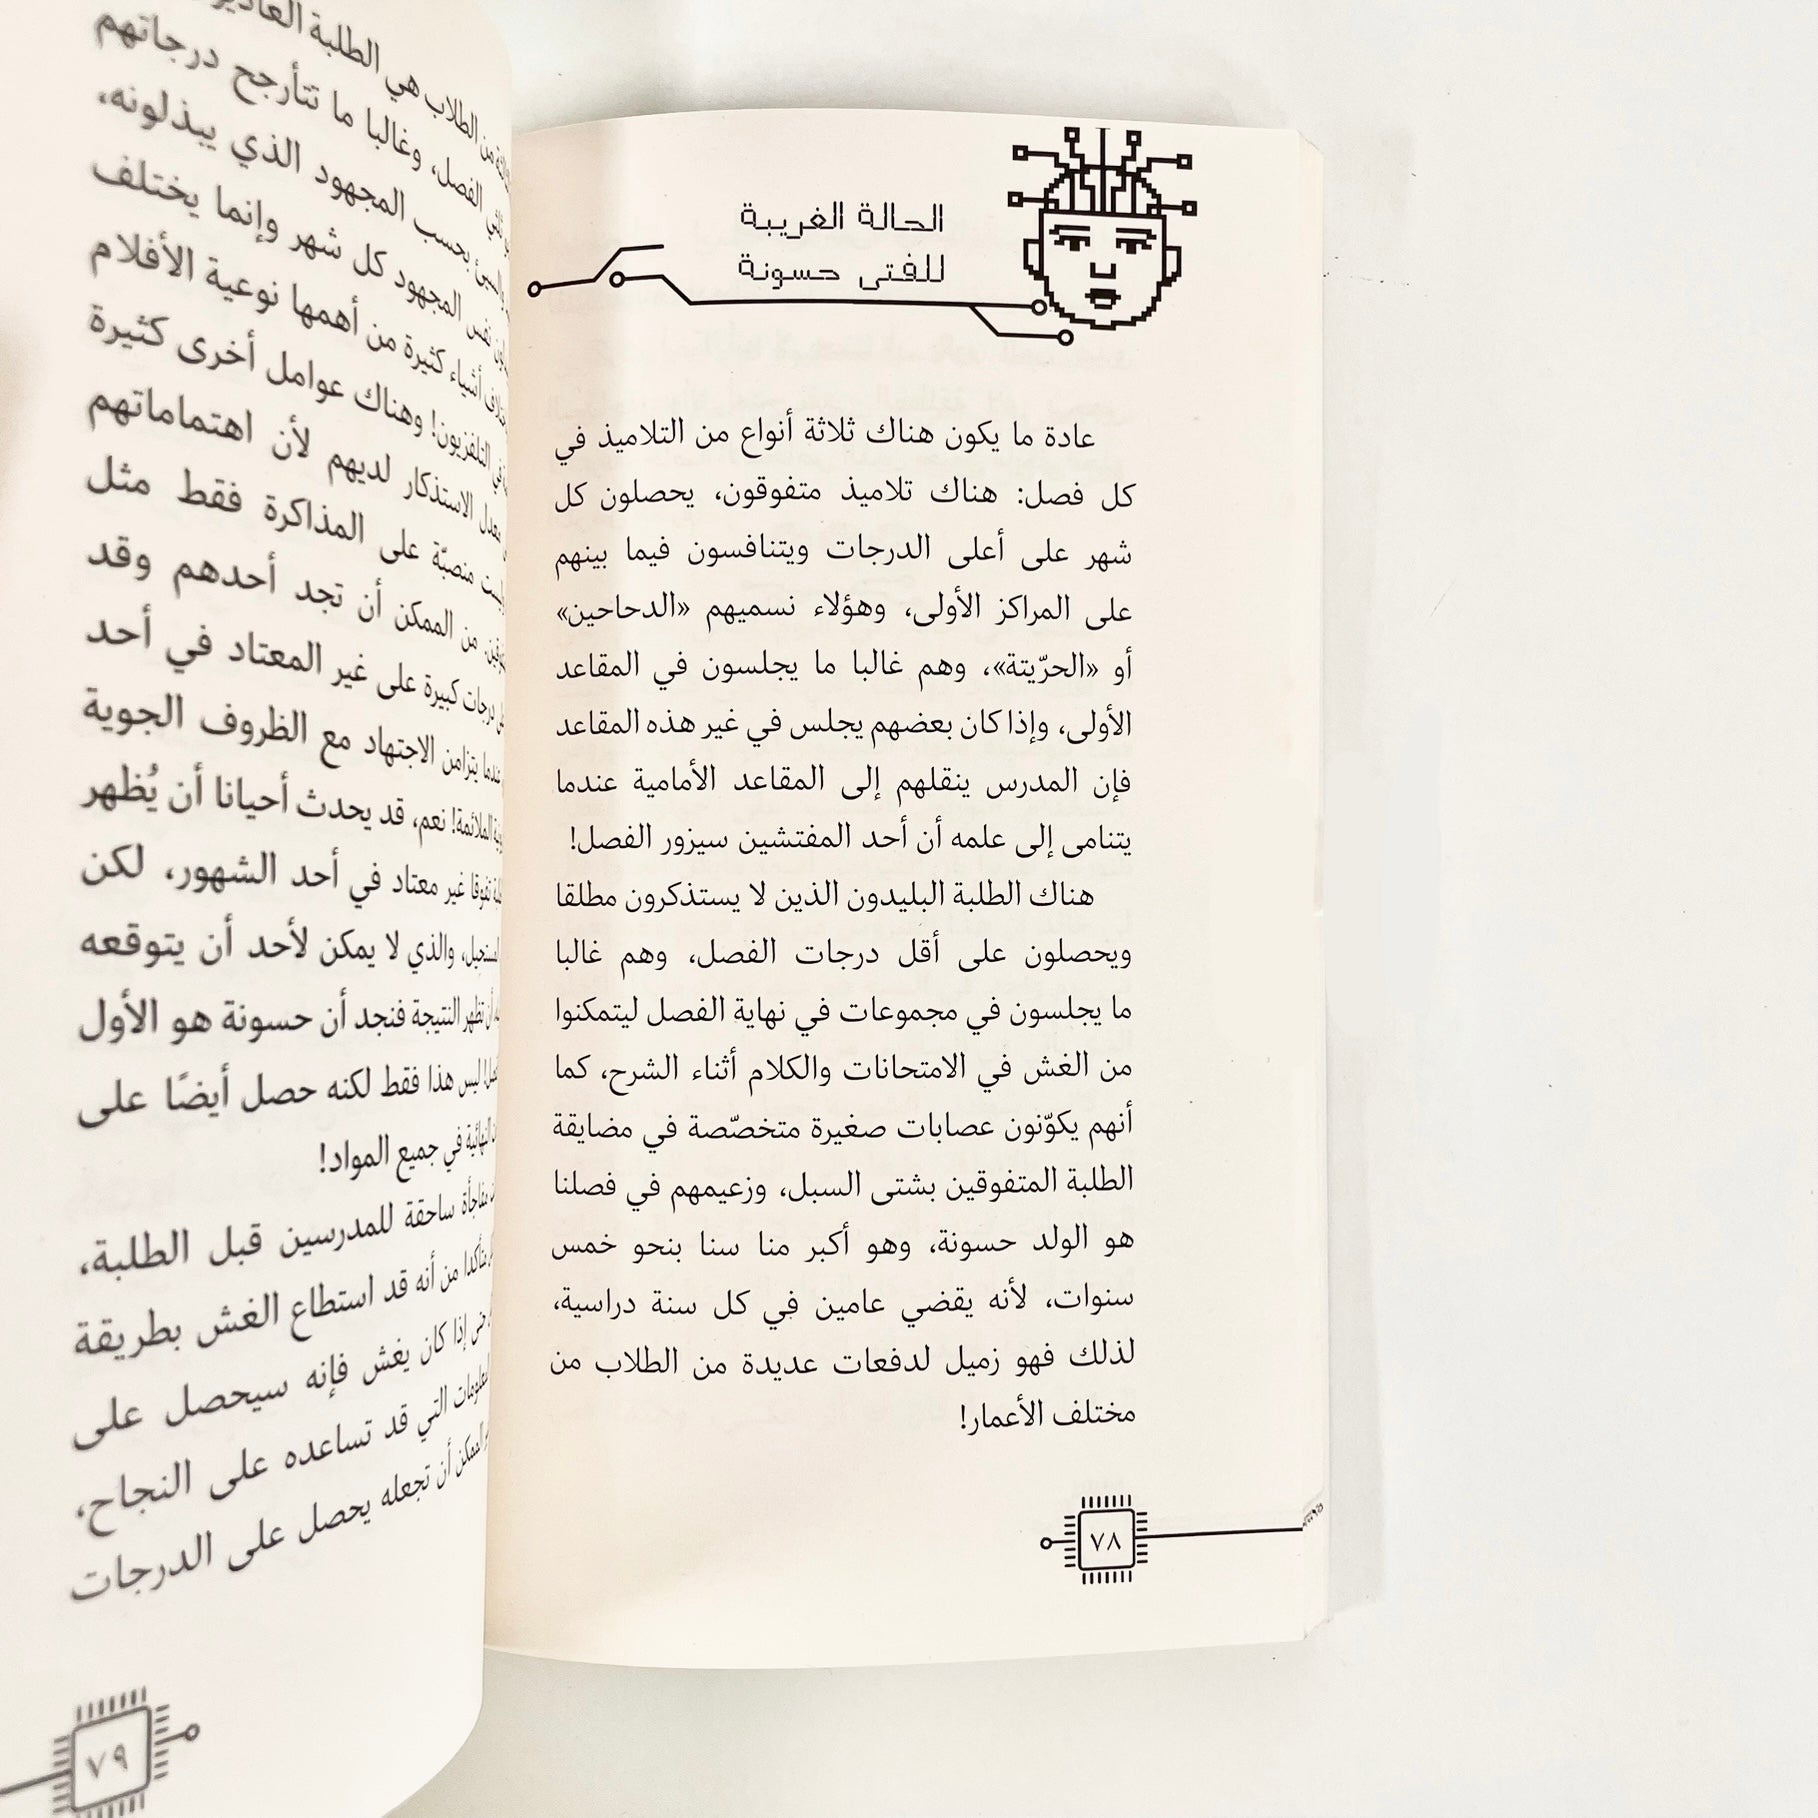 الحالة الغريبة
للفتى حسونة
عادة ما يكون هناك ثلاثة أنواع من التلاميذ في
كل فصل: هناك تلاميذ متفوقون، يحصلون كل
شهر على أعلى الدرجات ويتنافسون فيما بينهم
على المراكز الأولى، وهؤلاء نسميهم «الدحاحين»
أو «الحرّيتة»، وهم غالبا ما يجلسون في المقاعد
الأولى، وإذا كان بعضهم يجلس في غير هذه المقاعد
فإن المدرس ينقلهم إلى المقاعد الأمامية عندما
يتنامى إلى علمه أن أحد المفتشين سيزور الفصل!
هناك الطلبة البليدون الذين لا يستذكرون مطلقا
ويحصلون على أقل درجات الفصل، وهم غالبا
ما يجلسون في مجموعات في نهاية الفصل ليتمكنوا
من الغش في الامتحانات والكلام أثناء الشرح، كما
أنهم يكوّنون عصابات صغيرة متخصّصة في مضايقة
الطلبة المتفوقين بشتى السبل، وزعيمهم في فصلنا
هو الولد حسونة، وهو أكبر منا سنا بنحو خمس
سنوات، لأنه يقضي عامين في كل سنة دراسية،
لذلك فهو زميل لدفعات عديدة من الطلاب من
مختلف الأعمار!
٧٨
من الطلاب هي الطلبة
الفصل، وغالبا ما تتأرجح درجاتهم
بحسب المجهود الذي يبذلونه،
نفس المجهود كل شهر وإنما يختلف
أشياء كثيرة من أهمها نوعية الأفلام
في التلفزيون! وهناك عوامل أخرى كثيرة
معدل الاستذكار لديهم لأن اهتماماتهم
ليست منصبّة على المذاكرة فقط مثل
من الممكن أن تجد أحدهم وقد
درجات كبيرة على غير المعتاد في أحد
عندما يتزامن الاجتهاد مع الظروف الجوية
الملائمة! نعم، قد يحدث أحيانا أن يُظهر
تفوقا غير معتاد في أحد الشهور، لكن
المستحيل، والذي لا يمكن لأحد أن يتوقعه
أن تظهر النتيجة فنجد أن حسونة هو الأول
ليس هذا فقط لكنه حصل أيضًا على
النهائية في جميع المواد!
مفاجأة ساحقة للمدرسين قبل الطلبة،
متأكدا من أنه قد استطاع الغش بطريقة
حتى إذا كان يغش فإنه سيحصل على
المعلومات التي قد تساعده على النجاح،
الممكن أن تجعله يحصل على الدرجات
٧٩